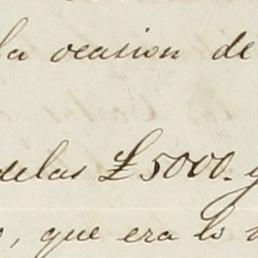 la ocasion de
delas £5000. y
o, que era lo